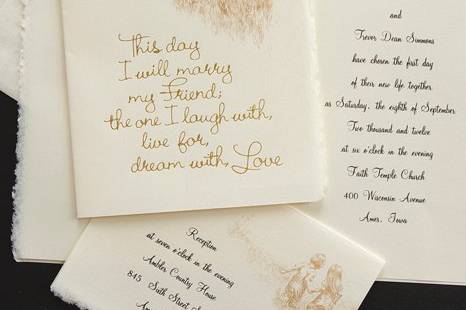 This day
I will marry
my Friend;
the one I laugh with,
live for,
dream with, Love
and
Trevor Dean Simmons
have chosen the first day
of their new life together
as Saturday, the eighth of September
Two thousand and twelve
at six o'clock in the evening
Faith Temple Church
400 Wisconsin Avenue
Ames, Iowa
Reception
at seven o'clock in the evening
Ambler Country House
845 Sixth Street